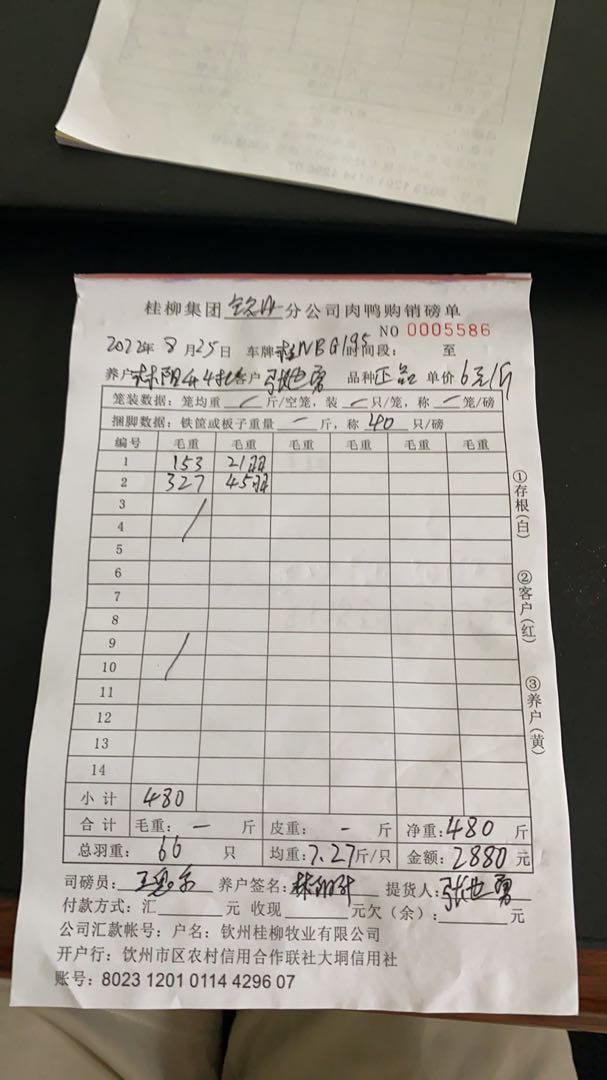 桂柳集团 钦州 分公司肉鸭购销磅单
NO 0005586
2022年 8 月 25 日 车牌 桂NBG195 时间段： 至
养户 林阳升4批 客户 张世勇 品种 正品 单价 6元/斤
笼装数据：笼均重 斤/空笼，装 只/笼，称 笼/磅
捆脚数据：铁筐或板子重量 — 斤，称 40 只/磅
编号 毛重 毛重 毛重 毛重 毛重 毛重
1 153 21羽
2 327 45羽
3
4
5
6
7
8
9
10
11
12
13
14
小计 480
合计 毛重： — 斤 皮重： — 斤 净重：480 斤
总羽重： 66 只 均重：7.27斤/只 金额：2880 元
司磅员： 养户签名：林阳升 提货人：张世勇
付款方式：汇 元 收现 元欠（余）： 元
公司汇款帐号：户名：钦州桂柳牧业有限公司
开户行：钦州市区农村信用合作联社大垌信用社
账号：8023 1201 0114 4296 07
①存根（白）
②客户（红）
③养户（黄）